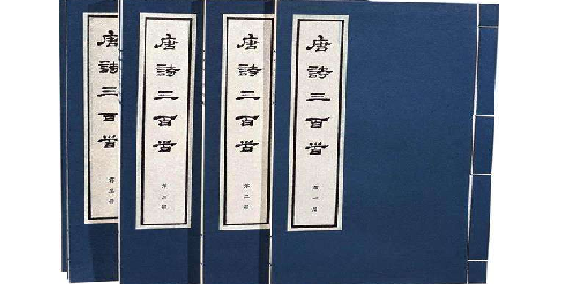 唐詩三百首
第一冊
唐詩三百首
第二冊
唐詩三百首
第三冊
唐詩三百首